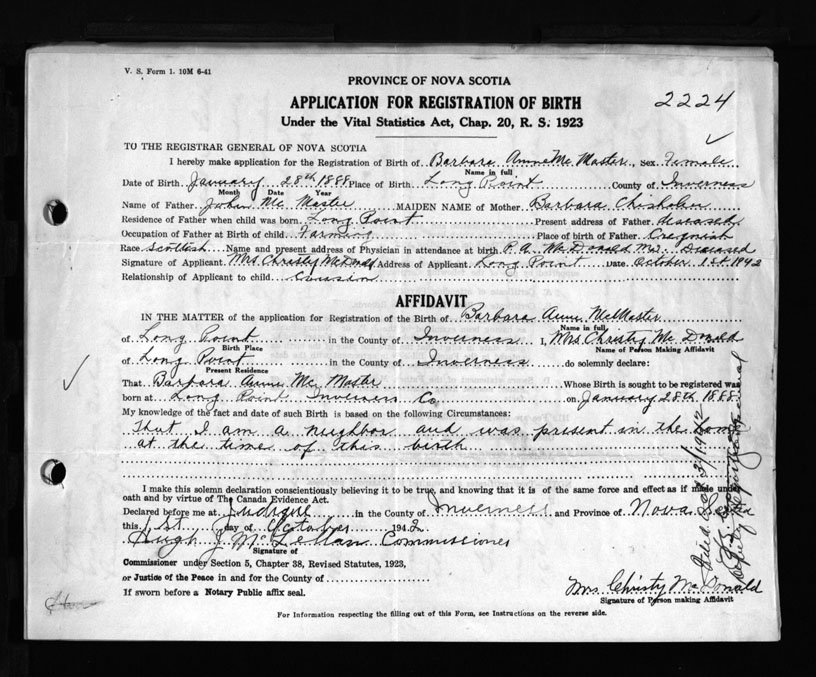 V. S. Form 1. 10M 6-41
PROVINCE OF NOVA SCOTIA
APPLICATION FOR REGISTRATION OF BIRTH
2224
Under the Vital Statistics Act, Chap. 20, R. S. 1923
TO THE REGISTRAR GENERAL OF NOVA SCOTIA
I hereby make application for the Registration of Birth of Barbara Anne Mc Master, sex Female
Name in full
Date of Birth January 28th 1888 Place of Birth Long Point County of Inverness
Month Date Year
Name of Father John Mc Master MAIDEN NAME of Mother Barbara Chisholm
Residence of Father when child was born Long Point Present address of Father deceased
Occupation of Father at Birth of child Farming Place of birth of Father Creignish
Race Scottish Name and present address of Physician in attendance at birth P. A. McDonald Deceased
Signature of Applicant Mrs Christy McDonald Address of Applicant Long Point Date October 1st 1942
Relationship of Applicant to child Cousin
AFFIDAVIT
IN THE MATTER of the application for Registration of the Birth of Barbara Anne McMaster
Name in full
of Long Point in the County of Inverness I, Mrs Christy Mc Donald
Birth Place Name of Person Making Affidavit
of Long Point in the County of Inverness do solemnly declare:
Present Residence
That Barbara Anne Mc Master Whose Birth is sought to be registered was
born at Long Point Inverness Co on January 28th 1888
My knowledge of the fact and date of such Birth is based on the following Circumstances:
That I am a neighbor and was present in the home
at the time of this birth
I make this solemn declaration conscientiously believing it to be true, and knowing that it is of the same force and effect as if made under
oath and by virtue of The Canada Evidence Act.
Declared before me at Judique in the County of Inverness and Province of Nova Scotia
this 1st day of October 1942
Hugh J McLellan Commissioner
Signature of
Commissioner under Section 5, Chapter 38, Revised Statutes, 1923,
or Justice of the Peace in and for the County of
If sworn before a Notary Public affix seal.
Mrs Christy McDonald
Signature of Person making Affidavit
For Information respecting the filling out of this Form, see Instructions on the reverse side.
Filed Oct 3/1942
Deputy Registrar General